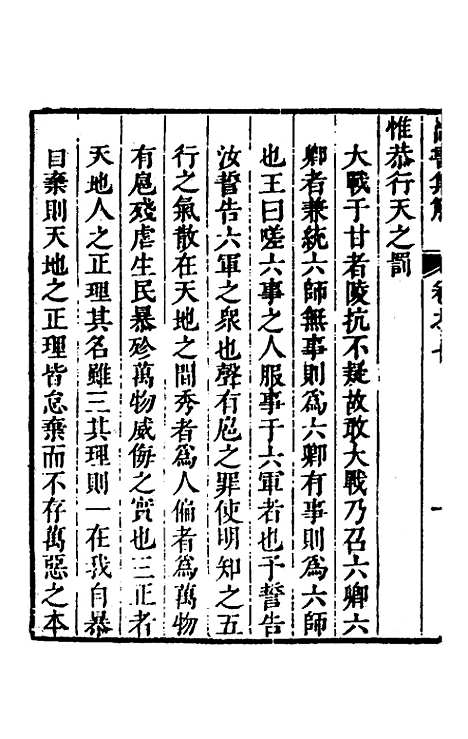 惟恭行天之罰
大戰于甘者陵抗不疑故敢大戰乃召六卿六
卿者兼統六師無事則爲六卿有事則爲六師
也王曰嗟六事之人服事于六軍者也予誓告
汝誓告六軍之衆也聲有扈之罪使明知之五
行之氣散在天地之間秀者爲人偏者爲萬物
有扈殘虐生民暴殄萬物威侮之實也三正者
天地人之正理其名雖三其理則一在我自暴
自棄則天地之正理皆怠棄而不存萬惡之本